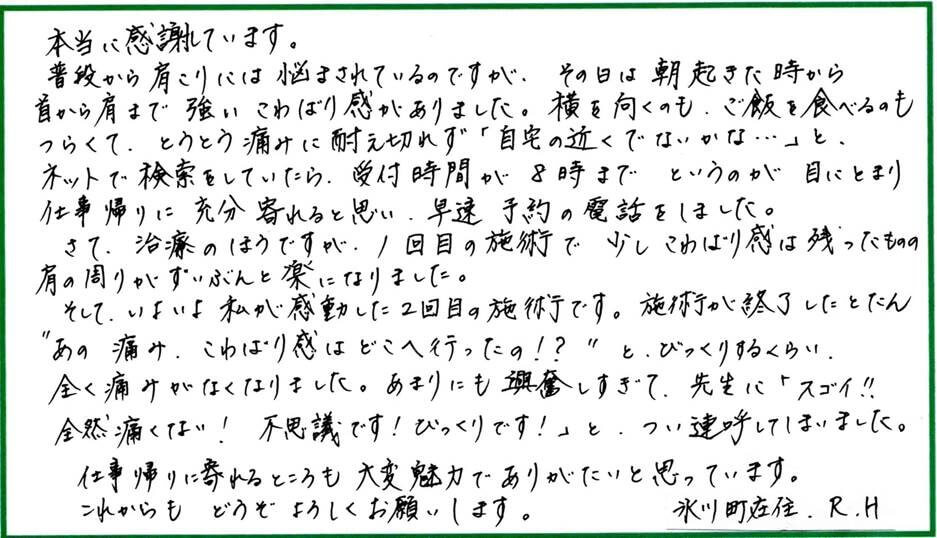 本当に感謝しています。
普段から肩こりには悩まされているのですが、その日は朝起きた時から
首から肩まで強いこわばり感がありました。横を向くのも、ご飯を食べるのも
つらくて、とうとう痛みに耐え切れず「自宅の近くでないかな…」と、
ネットで検索をしていたら、受付時間が8時までというのが目にとまり
仕事帰りに充分寄れると思い、早速予約の電話をしました。
さて、治療のほうですが、1回目の施術で少しこわばり感は残ったものの
肩の周りがずいぶんと楽になりました。
そして、いよいよ私が感動した2回目の施術です。施術が終了したとたん
"あの痛み、こわばり感はどこへ行ったの!?"と、びっくりするくらい、
全く痛みがなくなりました。あまりにも興奮しすぎて、先生に「スゴイ!!
全然痛くない!不思議です!びっくりです!」と、つい連呼してしまいました。
仕事帰りに寄れるところも大変魅力でありがたいと思っています。
これからもどうぞよろしくお願いします。 氷川町在住、R.H